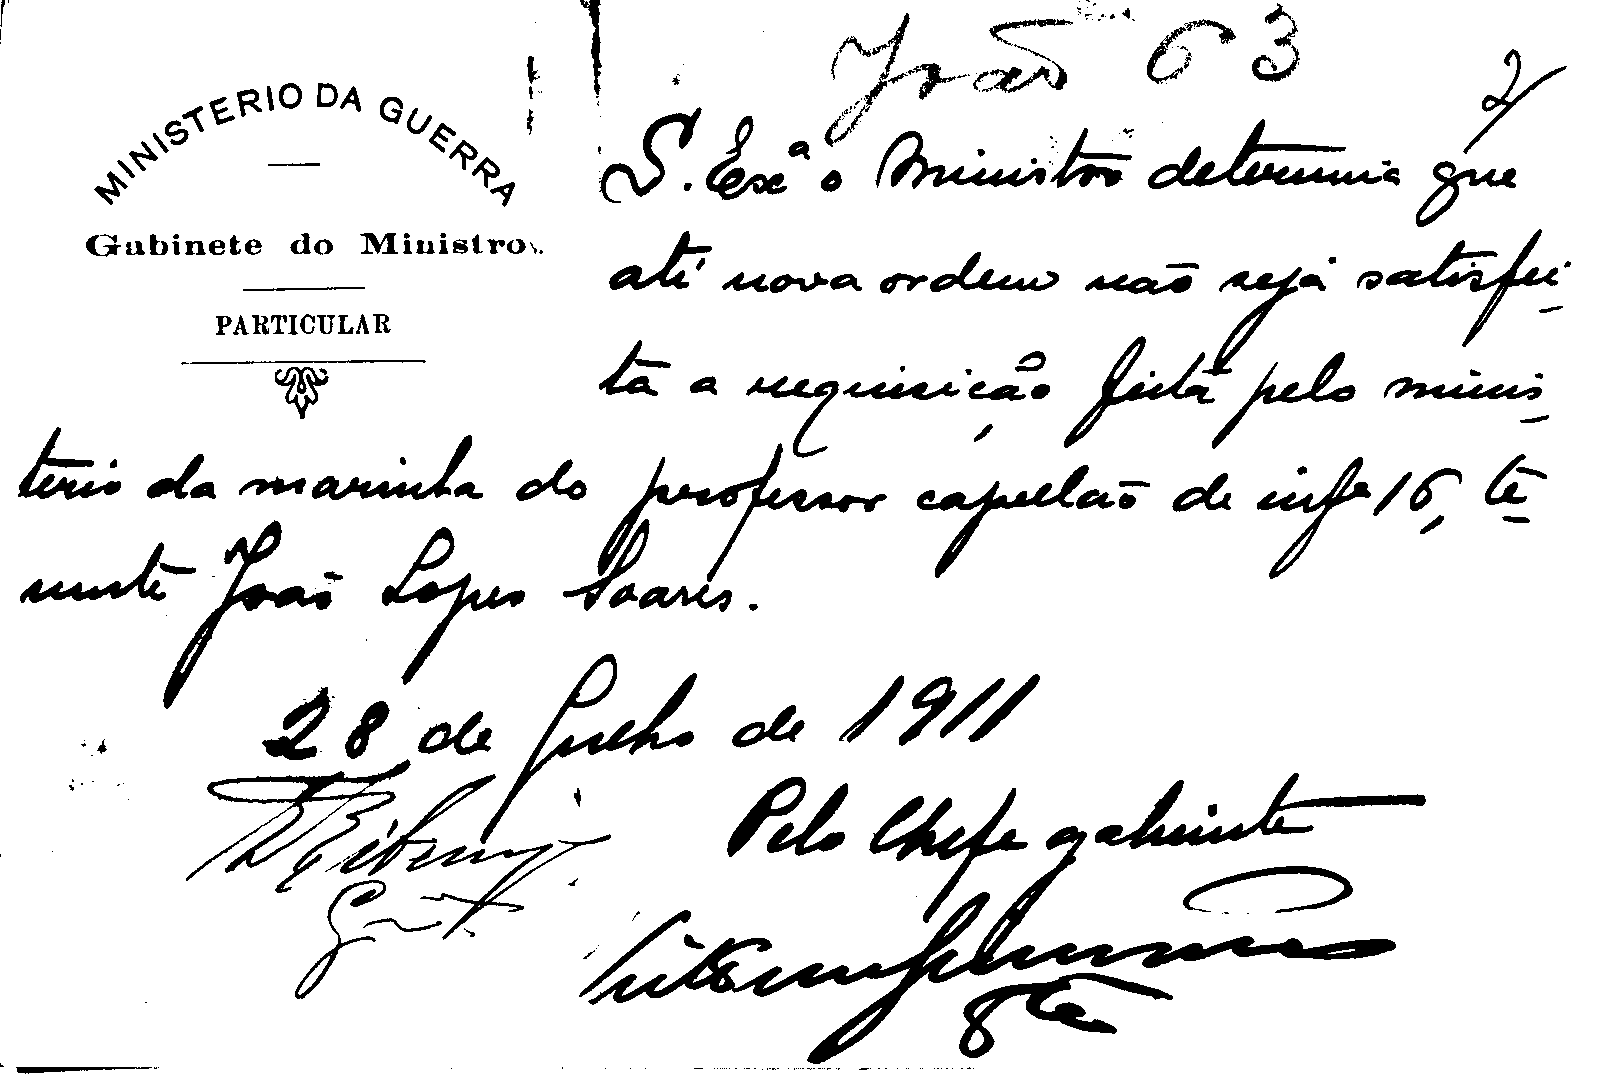 João 63
MINISTERIO DA GUERRA
Gabinete do Ministro
PARTICULAR
S. Exª o Ministro determina que
até nova ordem não seja satisfei-
ta a requisição feita pelo minis-
terio da marinha do professor capellão de infª 16, te-
nente João Lopes Soares.
28 de Julho de 1911
Pelo Chefe gabinete